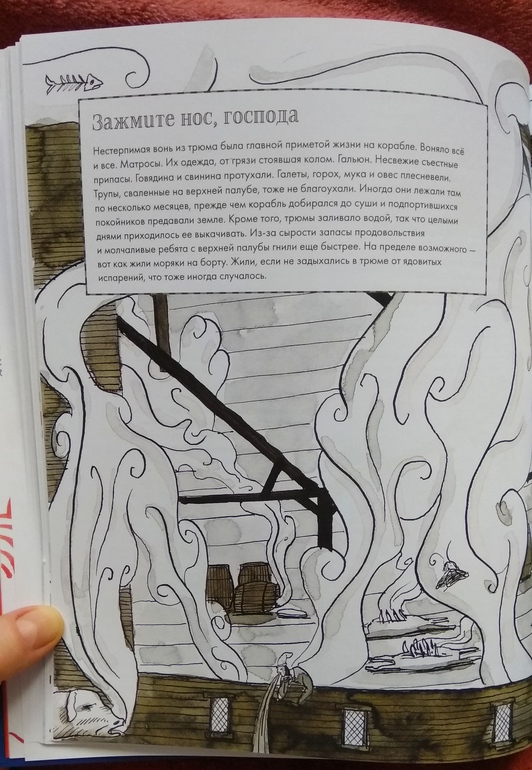 Зажмите нос, господа
Нестерпимая вонь из трюма была главной приметой жизни на корабле. Воняло всё
и все. Матросы. Их одежда, от грязи стоявшая колом. Гальюн. Несвежие съестные
припасы. Говядина и свинина протухали. Галеты, горох, мука и овес плесневели.
Трупы, сваленные на верхней палубе, тоже не благоухали. Иногда они лежали там
по несколько месяцев, прежде чем корабль добирался до суши и подпортившихся
покойников предавали земле. Кроме того, трюмы заливало водой, так что целыми
днями приходилось ее выкачивать. Из-за сырости запасы продовольствия
и молчаливые ребята с верхней палубы гнили еще быстрее. На пределе возможного –
вот как жили моряки на борту. Жили, если не задыхались в трюме от ядовитых
испарений, что тоже иногда случалось.